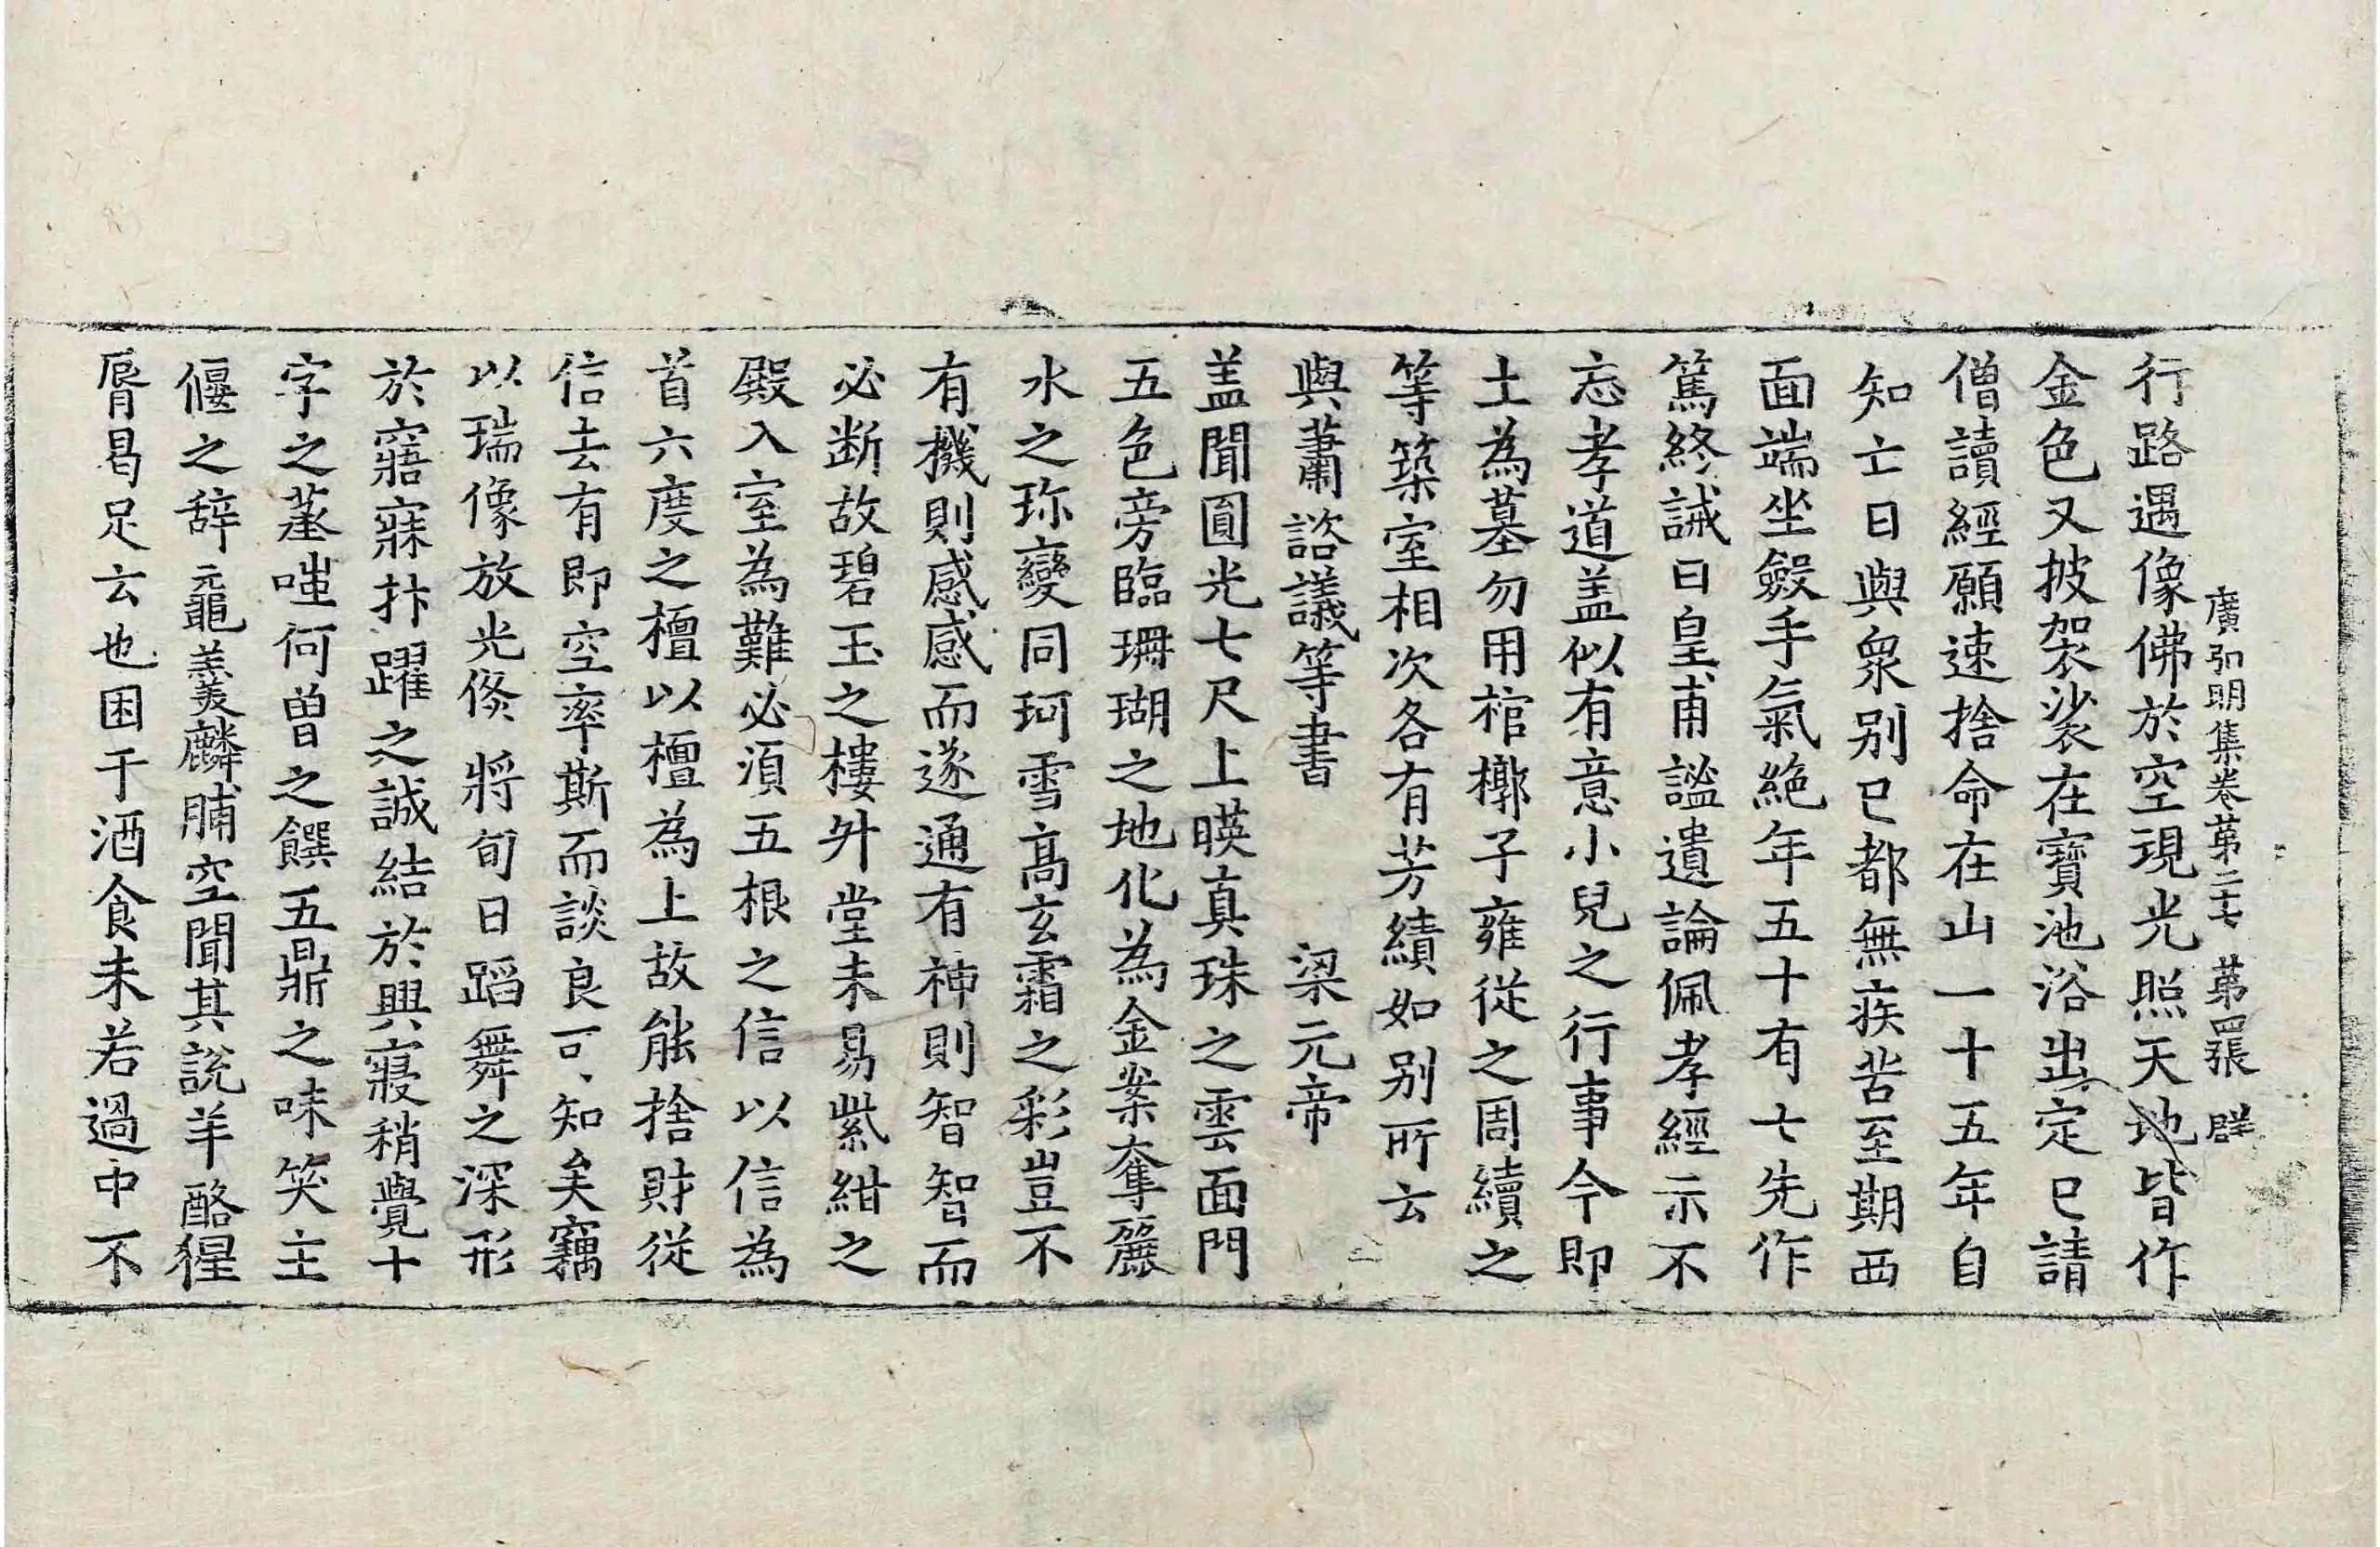 廣弘明集卷第二十七 第四張 群
行路遇像佛於空現光照天地皆作
金色又披袈裟在寶池浴出定已請
僧讀經願速捨命在山一十五年自
知亡日與衆别已都無疾苦至期西
面端坐斂手氣絶年五十有七先作
篤終誡曰皇甫謐遺論佩孝經示不
忘孝道盖似有意小兒之行事今即
土為墓勿用棺槨子雍從之周續之
等築室相次各有芳績如别所云
與蕭諮議等書 梁元帝
盖聞圓光七尺上暎真珠之雲面門
五色旁臨珊瑚之地化為金案奪麗
水之珎變同珂雪高玄霜之彩豈不
有機則感感而遂通有神則智智而
必断故碧玉之樓升堂未易紫紺之
殿入室為難必須五根之信以信為
首六度之檀以檀為上故能捨財從
信去有即空率斯而談良可知矣竊
以瑞像放光倏將旬日蹈舞之深形
於寤寐抃躍之誠結於興寢稍覺十
字之蒸嗤何曾之饌五鼎之味笑主
偃之辞元龜羹麟脯空聞其說羊酪猩
脣曷足云也困于酒食未若過中不